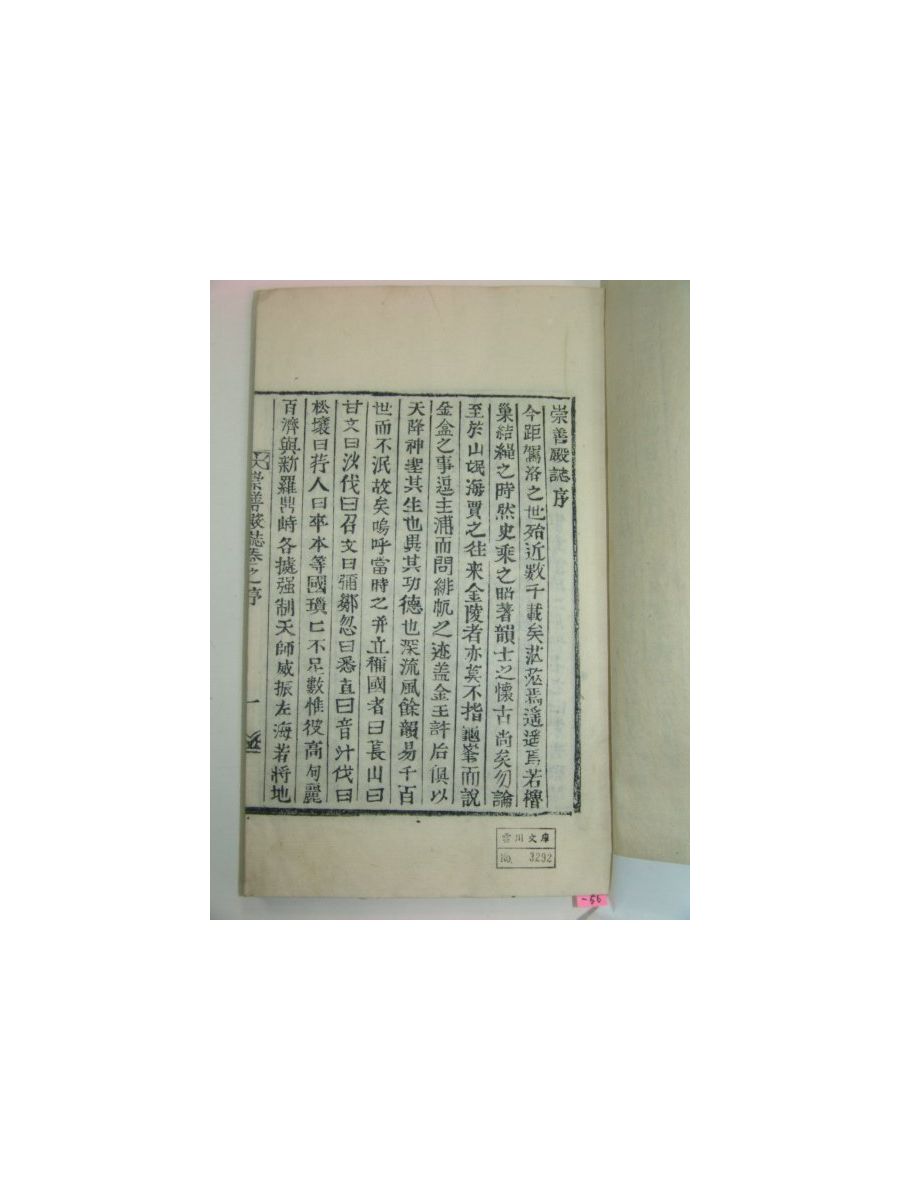 崇善殿誌序
今距駕洛之世殆近数千載矣茫茫焉遥遥焉若櫓
巢結繩之時然史乘之昭著韻士之懷古尚矣勿論
至於山氓海賈之往来金陵者亦莫不指龜峯而説
金盒之事逗主浦而問緋帆之迹盖金王許后俱以
天降神聖其生也異其功德也深流風餘韻易千百
世而不泯故矣嗚呼當時之并立稱國者曰萇山曰
甘文曰沙伐曰召文曰彌鄒忽曰悉直曰音汁伐曰
松壤曰荇人曰卒本等國瑣亡不足數惟彼高句麗
百濟與新羅鼎峙各據强制天師威振左海若將地
崇善殿誌卷之序
一
雲川文庫
No. 3292
-56